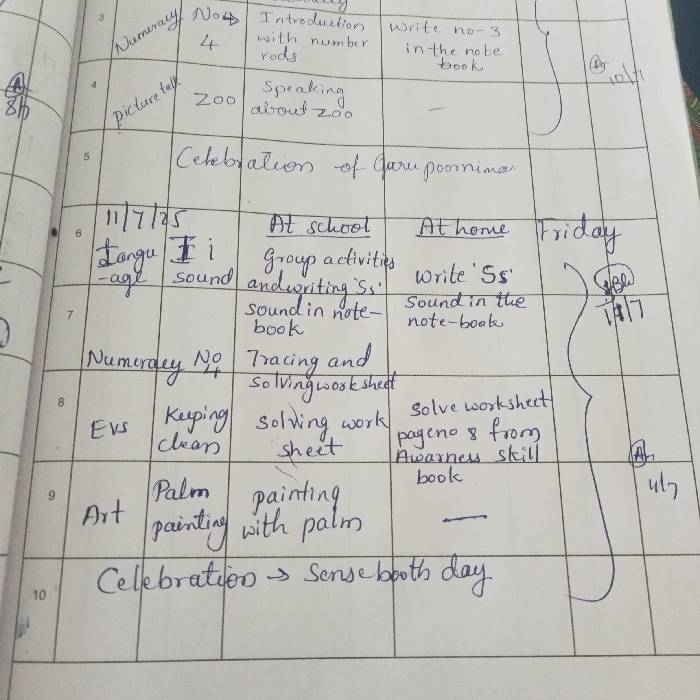 3 Numeracy No→ 4 Introduction with number rods Write no-3 in the note book
10/7
8/7
4 picture talk Zoo Speaking about zoo —
5 Celebration of Guru poornima
11/7/25 At school At home Friday
6 Langu-age I i sound Group activities and writing 'Ss' sound in note-book Write 'Ss' Sound in the note-book
11/7
7 Numeracy No 4 Tracing and solving worksheet
8 Evs Keeping clean solving work sheet Solve worksheet page no 8 from Awarness skill book
9 Art Palm painting painting with palm —
10 Celebration → Sense booth day